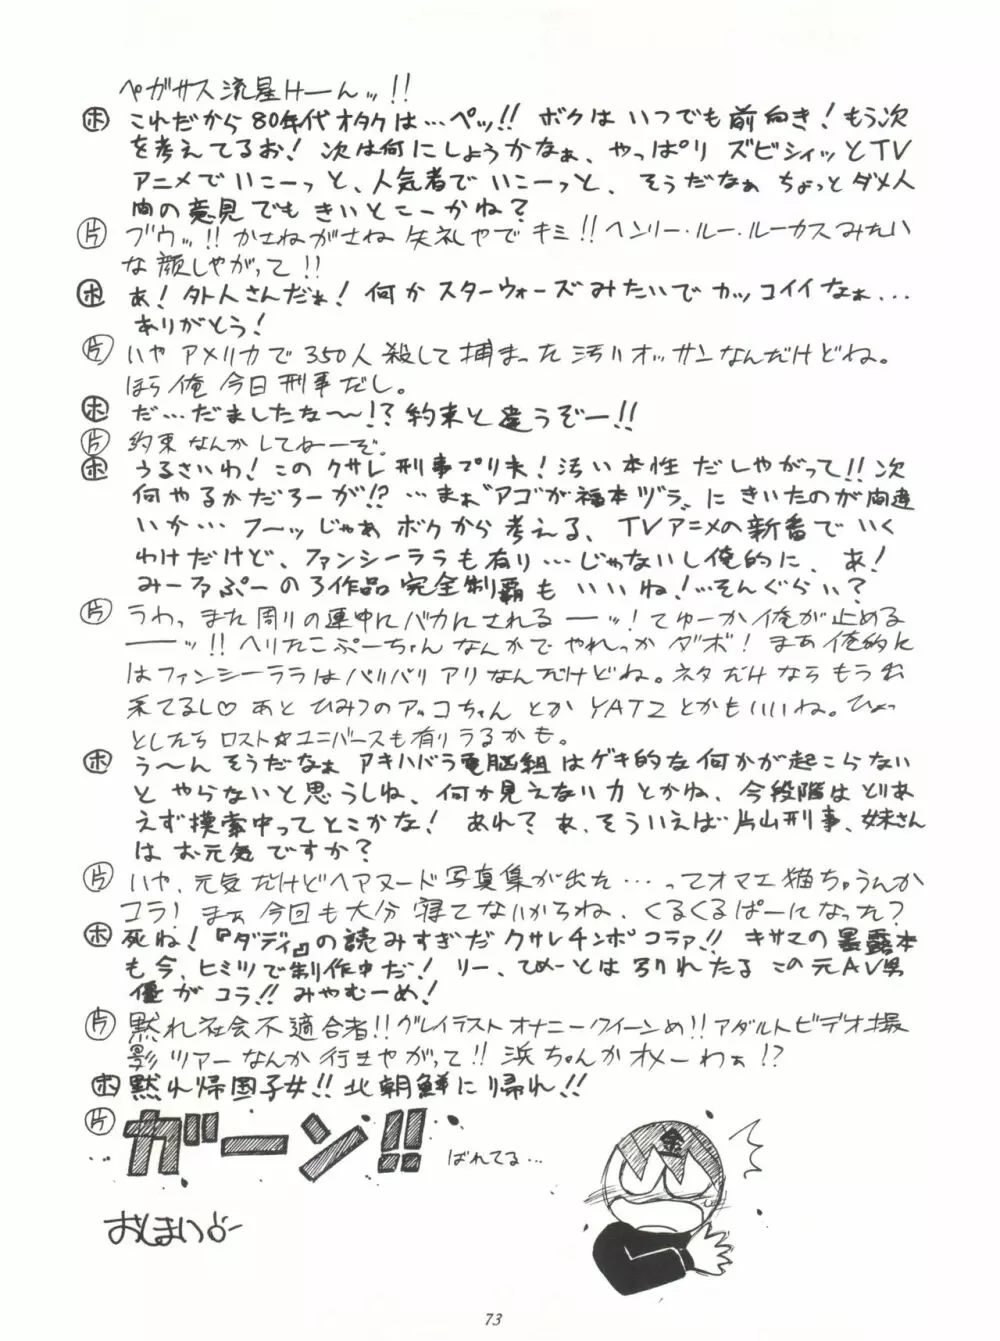 ペガサス流星けーんッ!!
ホ これだから80年代オタクは…ペッ!! ボクは いつでも前向き!もう次
を考えてるお! 次は何にしようかなぁ、やっぱり ズビシィッとTV
アニメでいこーっと、人気者でいこーっと、そうだなぁ ちょっとダメ人
間の意見でも きいとこーかね?
片 ブウッ!! かさねがさね 失礼やで キミ!!ヘンリー・ルー・ルーカスみたい
な顔しやがって!!
ホ あ!外人さんだぁ! 何か スターウォーズみたいで カッコイイなぁ...
ありがとう!
片 いや アメリカで 350人 殺して 捕まった 汚いオッサンなんだけどね。
ほら俺 今日 刑事だし。
ホ だ…だましたな〜!?約束と違うぞー!!
片 約束なんかしてねーぞ。
ホ うるさいわ! この クサレ刑事プリ夫!汚い本性だしやがって!!次
何やるかだろーが!? …まぁ“アゴが福本ヅラ〟にきいたのが間違
いか… フ〜ッじゃあ ボクから 考える、TVアニメの新番でいく
わけだけど、ファンシーララも有り…じゃないし俺的に、あ!
みーるぷーの3作品 完全制覇も いいね!…そんぐらい?
片 うわっ また周りの連中にバカにされるーーッ!てゆーか俺が止める
ーーッ!!ヘリたこぷーちゃん なんかで やれっか ダボ! まあ俺的に
はファンシーララはバリバリ アリなんだけどね。ネタだけならもう出
来てるし♡ あと ひみつのアッコちゃん とか YATZとかもいいね。ひょっ
としたら ロスト☆ユニバースも有りうるかも。
ホ う〜ん そうだなぁ アキハバラ電脳組はゲキ的な何かが起こらない
と やらないと思うしね、何か見えない力とかね、今段階はとりあ
えず模索中ってとこかな! あれ? あ、そういえば片山刑事、妹さん
は お元気ですか?
片 いや、元気だけどヘアヌード写真集が出た…ってオマエ猫ちゃうんか
コラ! まぁ 今回も大分 寝てないからね、くるくるぱーになった?
ホ 死ね!『ダディ』の読みすぎだ クサレチンポコラァ!! キサマの暴露本
も今、ヒミツで制作中だ! リー、てめーとは 別れたる この元AV男
優がコラ!!みやむーめ!
片 黙れ社会不適合者!!グレイテストオナニークイーンめ!!アダルトビデオ撮
影ツアーなんか行きやがって!!浜ちゃんかオメーわぁ!?
ホ 黙れ帰国子女!!北朝鮮に帰れ!!
片 ガーン!! ばれてる…
金
おしまい
73